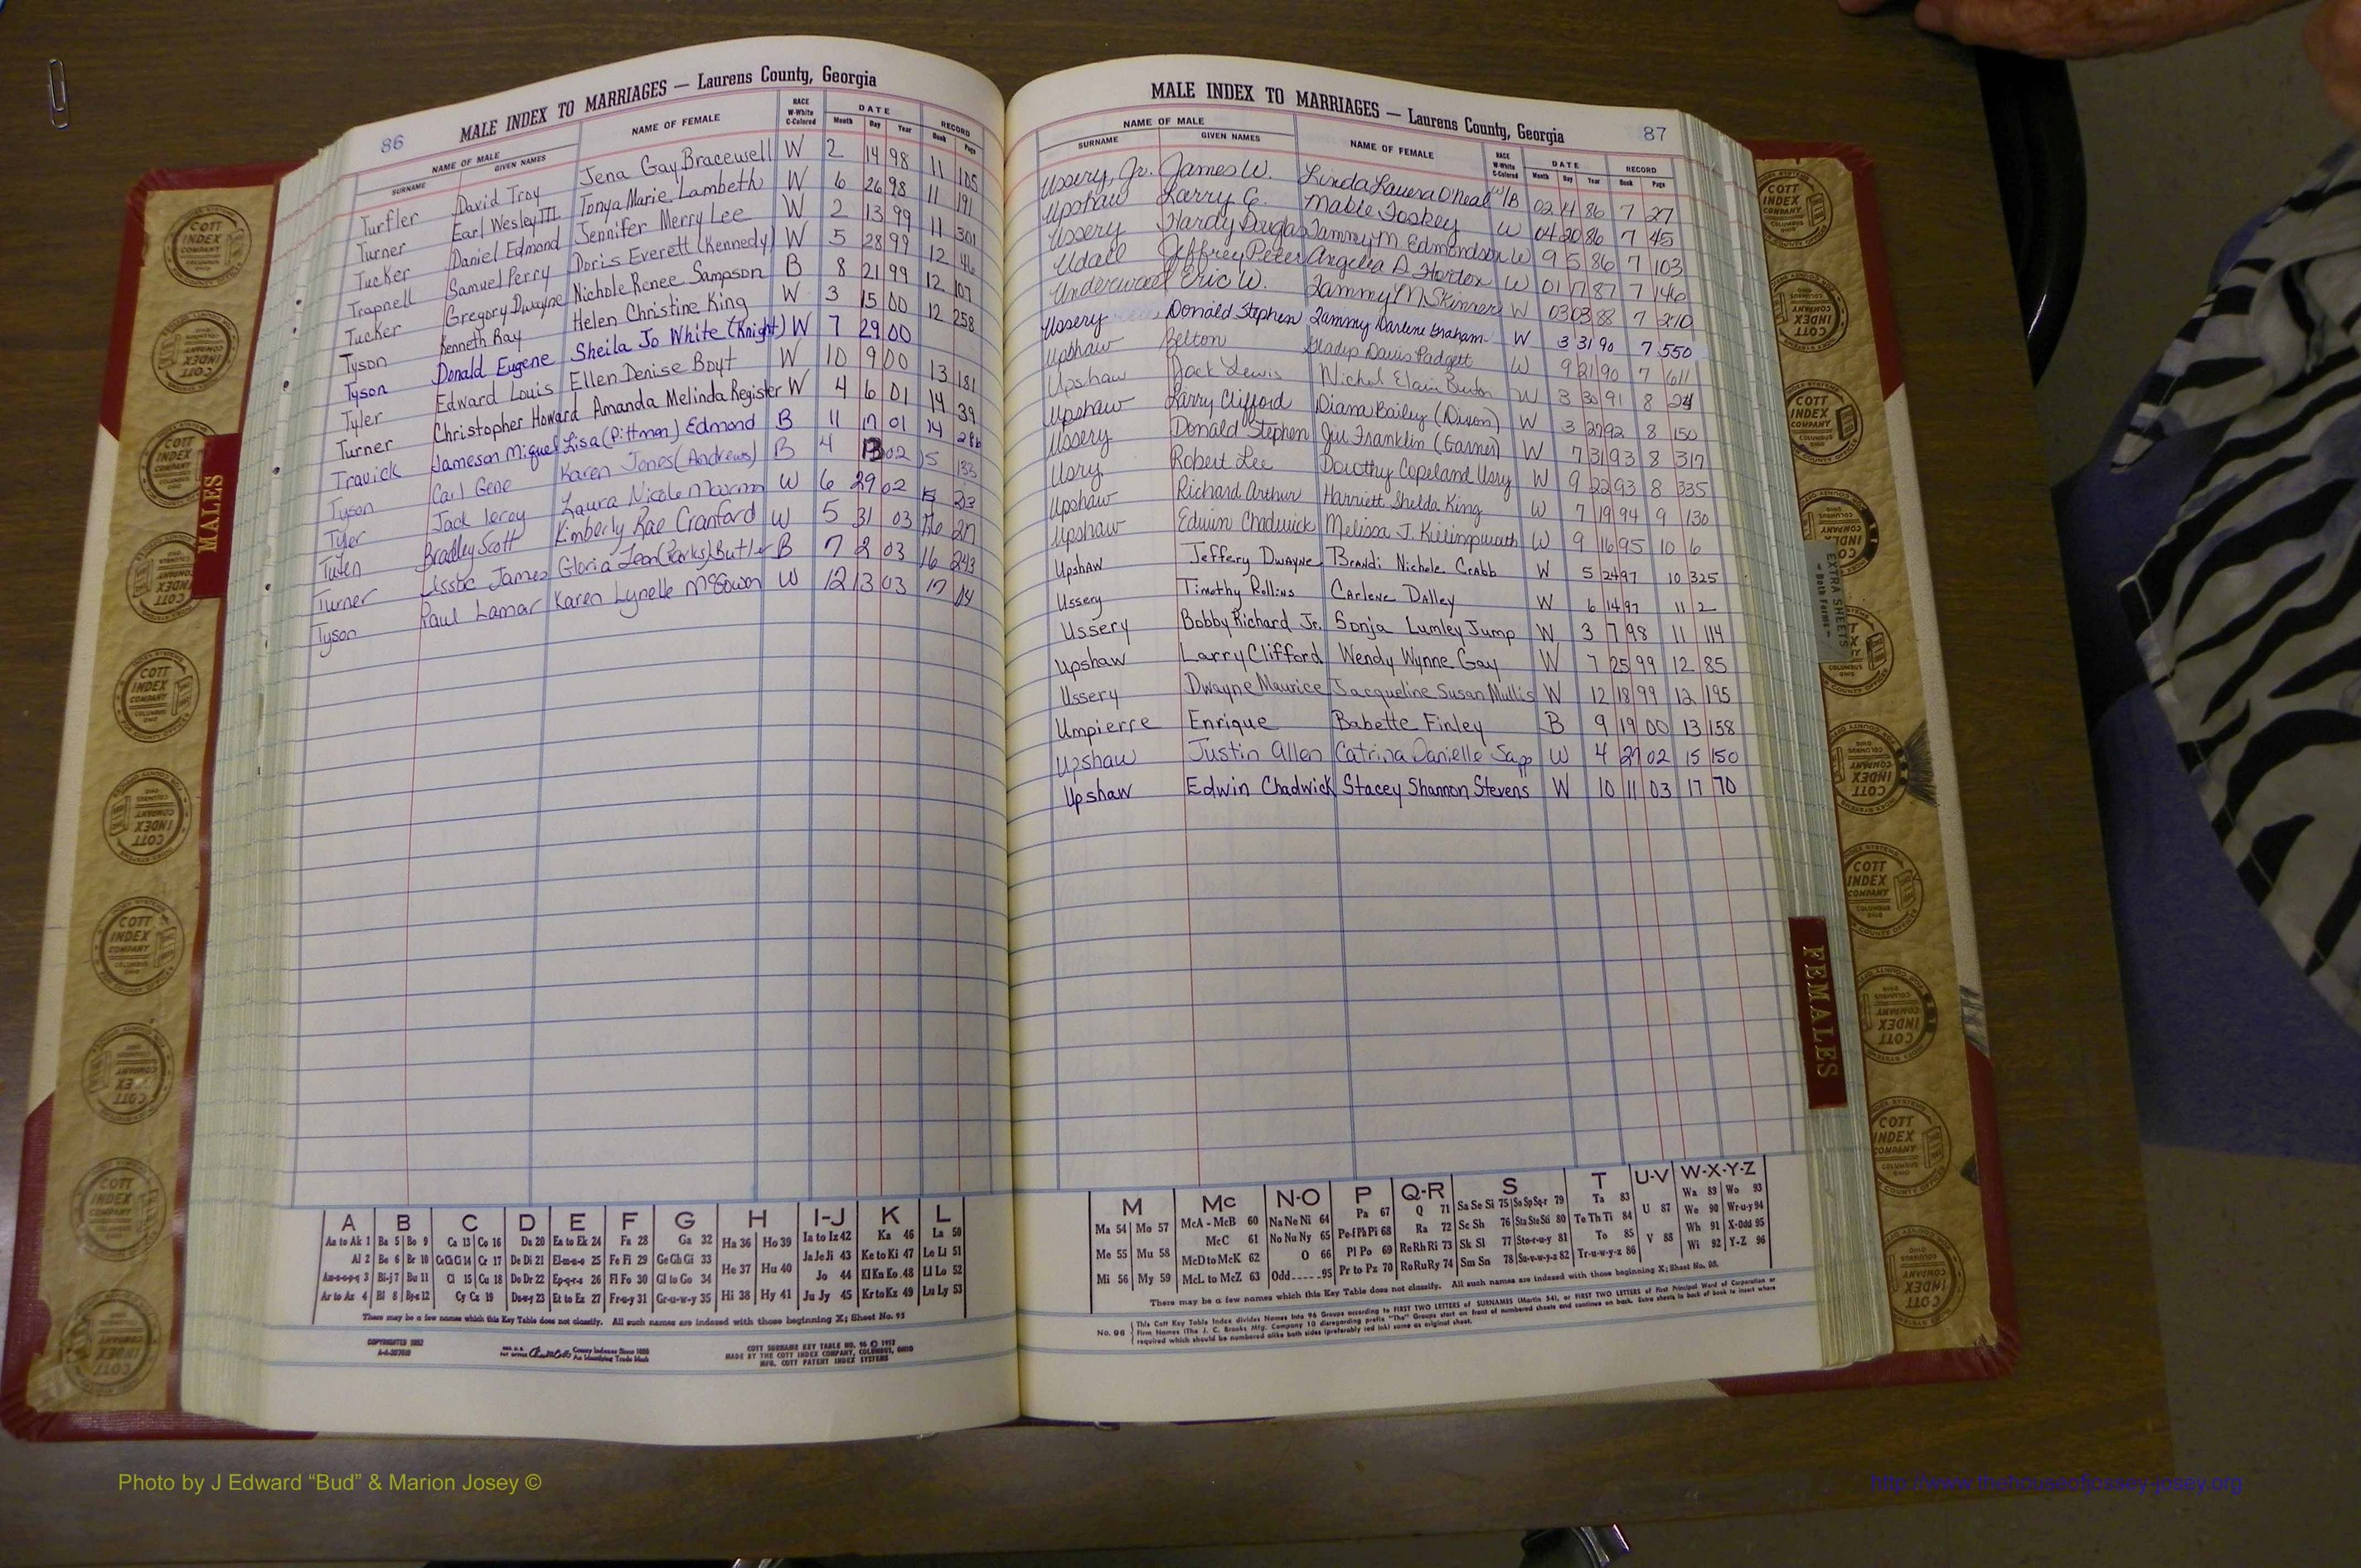 86
MALE INDEX TO MARRIAGES — Laurens County, Georgia
NAME OF MALE NAME OF FEMALE RACE W-White C-Colored DATE RECORD
SURNAME GIVEN NAMES Month Day Year Book Page
Turfler David Troy Jena Gay Bracewell W 2 14 98 11 105
Turner Earl Wesley III Tonya Marie Lambeth W 6 26 98 11 191
Tucker Daniel Edmond Jennifer Merry Lee W 2 13 99 11 301
Trapnell Samuel Perry Doris Everett (Kennedy) W 5 28 99 12 46
Tucker Gregory Dwayne Nichole Renee Sampson B 8 21 99 12 107
Tyson Kenneth Ray Helen Christine King W 3 15 00 12 258
Tyson Donald Eugene Sheila Jo White (Knight) W 7 29 00
Tyler Edward Louis Ellen Denise Boyt W 10 9 00 13 181
Turner Christopher Howard Amanda Melinda Register W 4 6 01 14 39
Travick Jameson Miguel Lisa (Pittman) Edmond B 11 17 01 14 286
Tyson Carl Gene Karen Jones (Andrews) B 4 13 02 15 133
Tyler Jack leroy Laura Nicole W 6 29 02 15 213
Tuten Bradley Scott Kimberly Rae Cranford W 5 31 03 16 217
Turner James Gloria Jean (Parks) Butler B 7 2 03 16 243
Tyson Paul Lamar Karen Lynelle McGowan W 12 13 03 17
87
MALE INDEX TO MARRIAGES — Laurens County, Georgia
NAME OF MALE NAME OF FEMALE RACE W-White C-Colored DATE RECORD
SURNAME GIVEN NAMES Month Day Year Book Page
Ussery, Jr. James W. Linda Laura O'Neal W/B 02 14 86 7 27
Upshaw Larry C. Mable Foskey W 04 20 86 7 45
Ussery Hardy Douglas Tammy M Edmondson W 9 5 86 7 103
Udall Jeffrey Peter Angelia D. Horton W 01 17 87 7 146
Underwood Eric W. Tammy M Skinner W 03 03 88 7 270
Ussery Donald Stephen Tammy Darlene Graham W 3 31 90 7 550
Upshaw Belton Gladys Davis Padgett W 9 21 90 7 611
Upshaw Jack Lewis Nichel Elain Burton W 3 30 91 8 24
Upshaw Larry Clifford Diana Bailey (Dixon) W 3 27 92 8 150
Ussery Donald Stephen Jill Franklin (Garner) W 7 31 93 8 317
Usry Robert Lee Dorothy Copeland Usry W 9 22 93 8 335
Upshaw Richard Arthur Harriett Shelda King W 7 19 94 9 130
Upshaw Edwin Chadwick Melissa J. Killingsworth W 9 16 95 10 6
Upshaw Jeffery Dwayne Brandi Nichole Crabb W 5 24 97 10 325
Ussery Timothy Rollins Carlene Dalley W 6 14 97 11 2
Ussery Bobby Richard Jr. Sonja Lumley Jump W 3 7 98 11 114
Upshaw Larry Clifford Wendy Wynne Gay W 7 25 99 12 85
Ussery Dwayne Maurice Jacqueline Susan Mullis W 12 18 99 12 195
Umpierre Enrique Babette Finley B 9 19 00 13 158
Upshaw Justin Allen Catrina Danielle Sapp W 4 27 02 15 150
Upshaw Edwin Chadwick Stacey Shannon Stevens W 10 11 03 17 70
MALES
FEMALES
EXTRA SHEETS
COTT INDEX COMPANY COLUMBUS OHIO
A B C D E F G H I-J K L
Aa to Ak 1 Ba 5 Bo 9 Ca 13 Co 16 Da 20 Ea to Ek 24 Fa 28 Ga 32 Ha 36 Ho 39 Ia to Iz 42 Ka 46 La 50
Al 2 Be 6 Br 10 Ce Ch Ci 14 Cr 17 De Di 21 El-m-n-o 25 Fe Fi 29 Ge Gh Gi 33 He 37 Hu 40 Ja Je Ji 43 Ke to Ki 47 Le Li 51
Am-n-o-p-q 3 Bi-j 7 Bu 11 Cl 15 Cu 18 Do Dr 22 Ep-q-r-s 26 Fl Fo 30 Gl to Go 34 Jo 44 Kl Kn Ko 48 Ll Lo 52
Ar to Az 4 Bl 8 By-z 12 Cy Cz 19 Du-w-y 23 Et to Ez 27 Fr-u-y 31 Gr-u-w-y 35 Hi 38 Hy 41 Ju Jy 45 Kr to Kz 49 Lu Ly 53
There may be a few names which this Key Table does not classify. All such names are indexed with those beginning X; Sheet No. 95
COTT SURNAME KEY TABLE NO. 96 © 1952
MADE BY THE COTT INDEX COMPANY, COLUMBUS, OHIO
MFG. COTT PATENT INDEX SYSTEMS
M Mc N-O P Q-R S T U-V W-X-Y-Z
Ma 54 Mo 57 McA - McB 60 Na Ne Ni 64 Pa 67 Q 71 Sa Se Si 75 So Sp Sq-r 79 Ta 83 U 87 Wa 89 Wo 93
Me 55 Mu 58 McC 61 No Nu Ny 65 Pe-f Ph Pi 68 Ra 72 Sc Sh 76 Sta Ste Sti 80 Te Th Ti 84 We 90 Wr-u-y 94
McD to McK 62 O 66 Pl Po 69 Re Rh Ri 73 Sk Sl 77 Sto-r-u-y 81 To 85 V 88 Wh 91 X-Odd 95
Mi 56 My 59 McL to McZ 63 Odd-----95 Pr to Pz 70 Ro Ru Ry 74 Sm Sn 78 Su-v-w-y-z 82 Tr-u-w-y-z 86 Wi 92 Y-Z 96
There may be a few names which this Key Table does not classify. All such names are indexed with those beginning X; Sheet No. 95.
No. 96 This Cott Key Table Index divides Names into 96 Groups according to FIRST TWO LETTERS of SURNAMES (Martin 54), or FIRST TWO LETTERS of First Principal Word of Corporation or
Firm Names (The J. C. Brooks Mfg. Company 10 disregarding prefix "The" Groups start on front of numbered sheets and continue on back. Extra sheets in back of book to insert where
required which should be numbered alike both sides (preferably red ink) same as original sheet.
Photo by J Edward “Bud” & Marion Josey ©
http://www.thehouseofjossey-josey.org